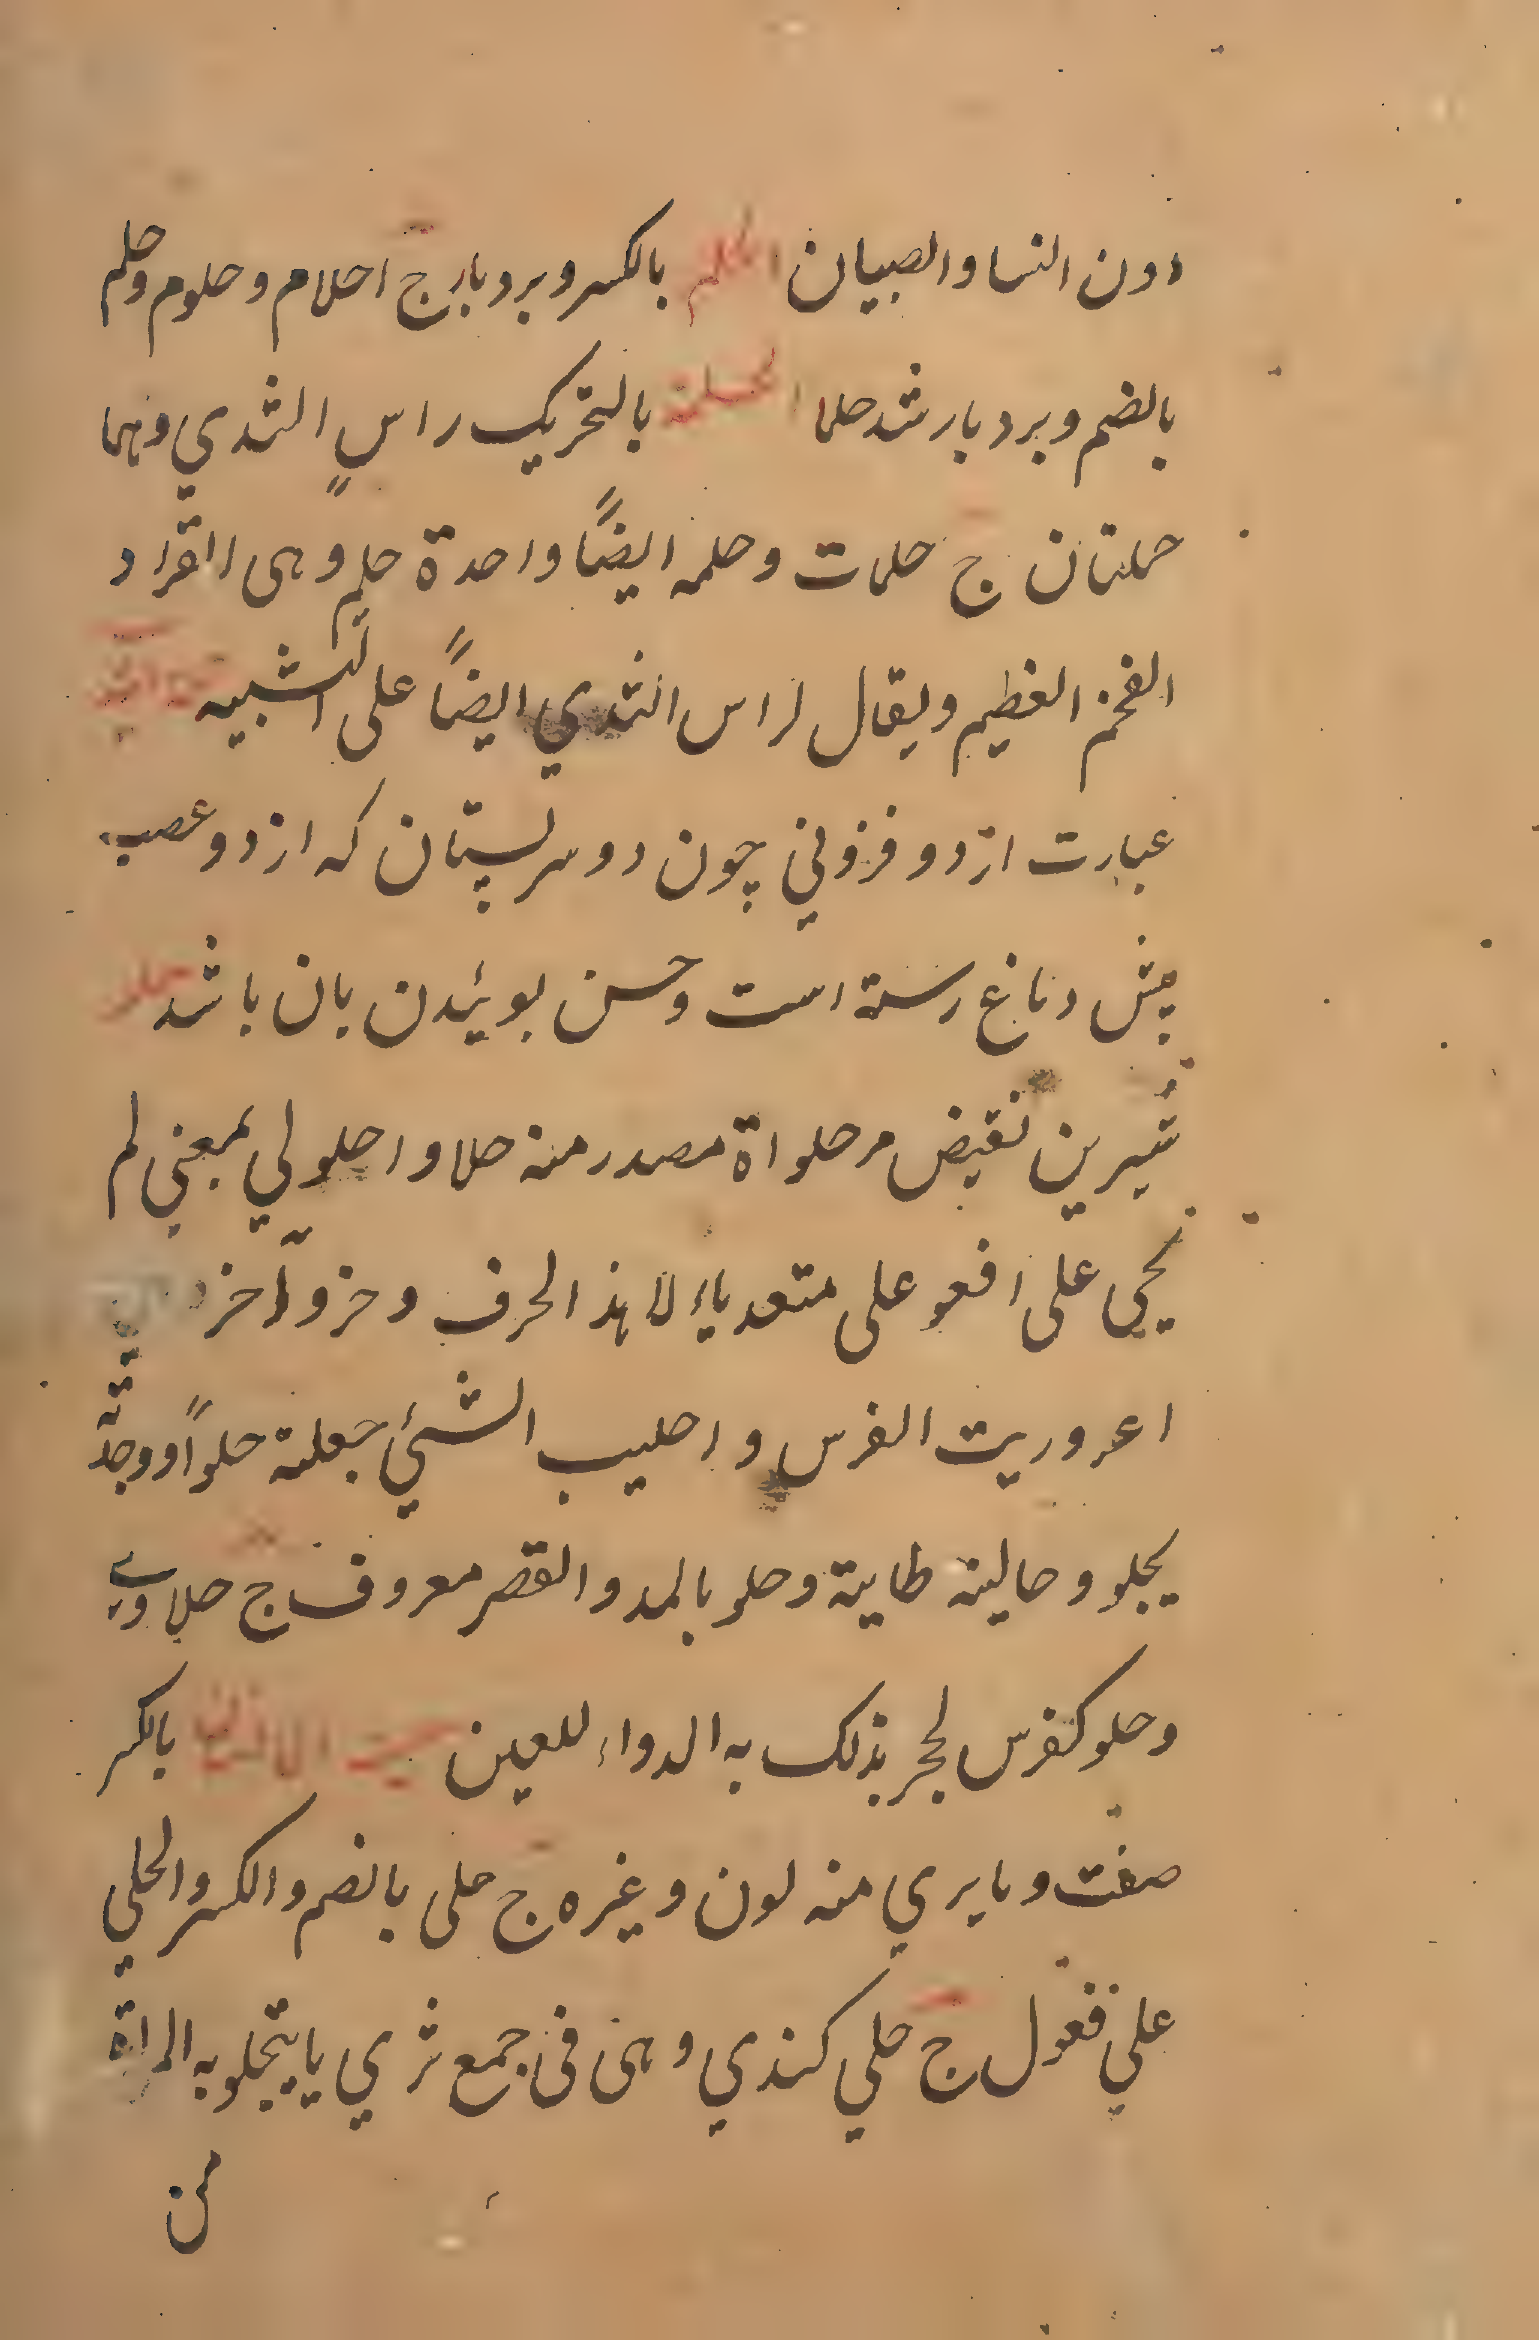 دون النسا والصبيان الحلم بالكسر وبردبار ج احلام وحلوم وحلم
بالضم وبردبار شد حلما الحلمة بالتحريك راس الثدي وهما
حلمتان ج حلمات وحلمه ايضًا واحدة حلم وهى القراد
الفخم العظيم ويقال لراس الثدي ايضًا على التشبيه
عبارت از دو فزوني چون دو سر پستان كه از دو عصب
پيش دماغ رسته است وحسن بوئيدن بان باشد حلو
شيرين نقيض مر حلواة مصدر منه حلا واحلولي بمعني لم
يحيى على افعو على متعديا الا هذ الحرف وحزو آخر
اعروريت الفرس واحليب الشيئ جعلته حلوًا ووجدته
يحلو وحاليته طايبة وحلو بالمد والقصر معروف ج حلاوي
وحلو كفرس لحجر بذلك به الدواء للعين بالكسر
صفت وما يري منه لون وغيره ج حلى بالضم والكسر والحلي
علي فعول ج حلي كندي وهى فى جمع ثري يا يتحلو به المراة
من